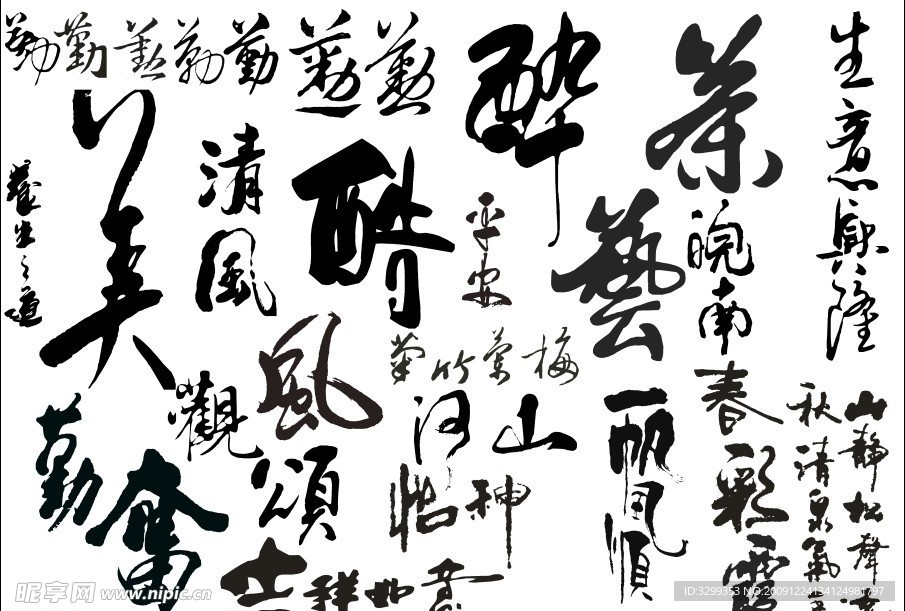 勤勤勤勤勤勤勤
醉
茶
藝
生意興隆
養生之道
清風
醋
平安
皖南春
菊竹蘭梅
風
頌
觀
勤
奮
山河
神怡
一帆風順
彩雲
山靜松聲
秋清泉氣
吉祥如意
昵享网 www.nipic.cn
ID:3299353 NO:20091224134124981797